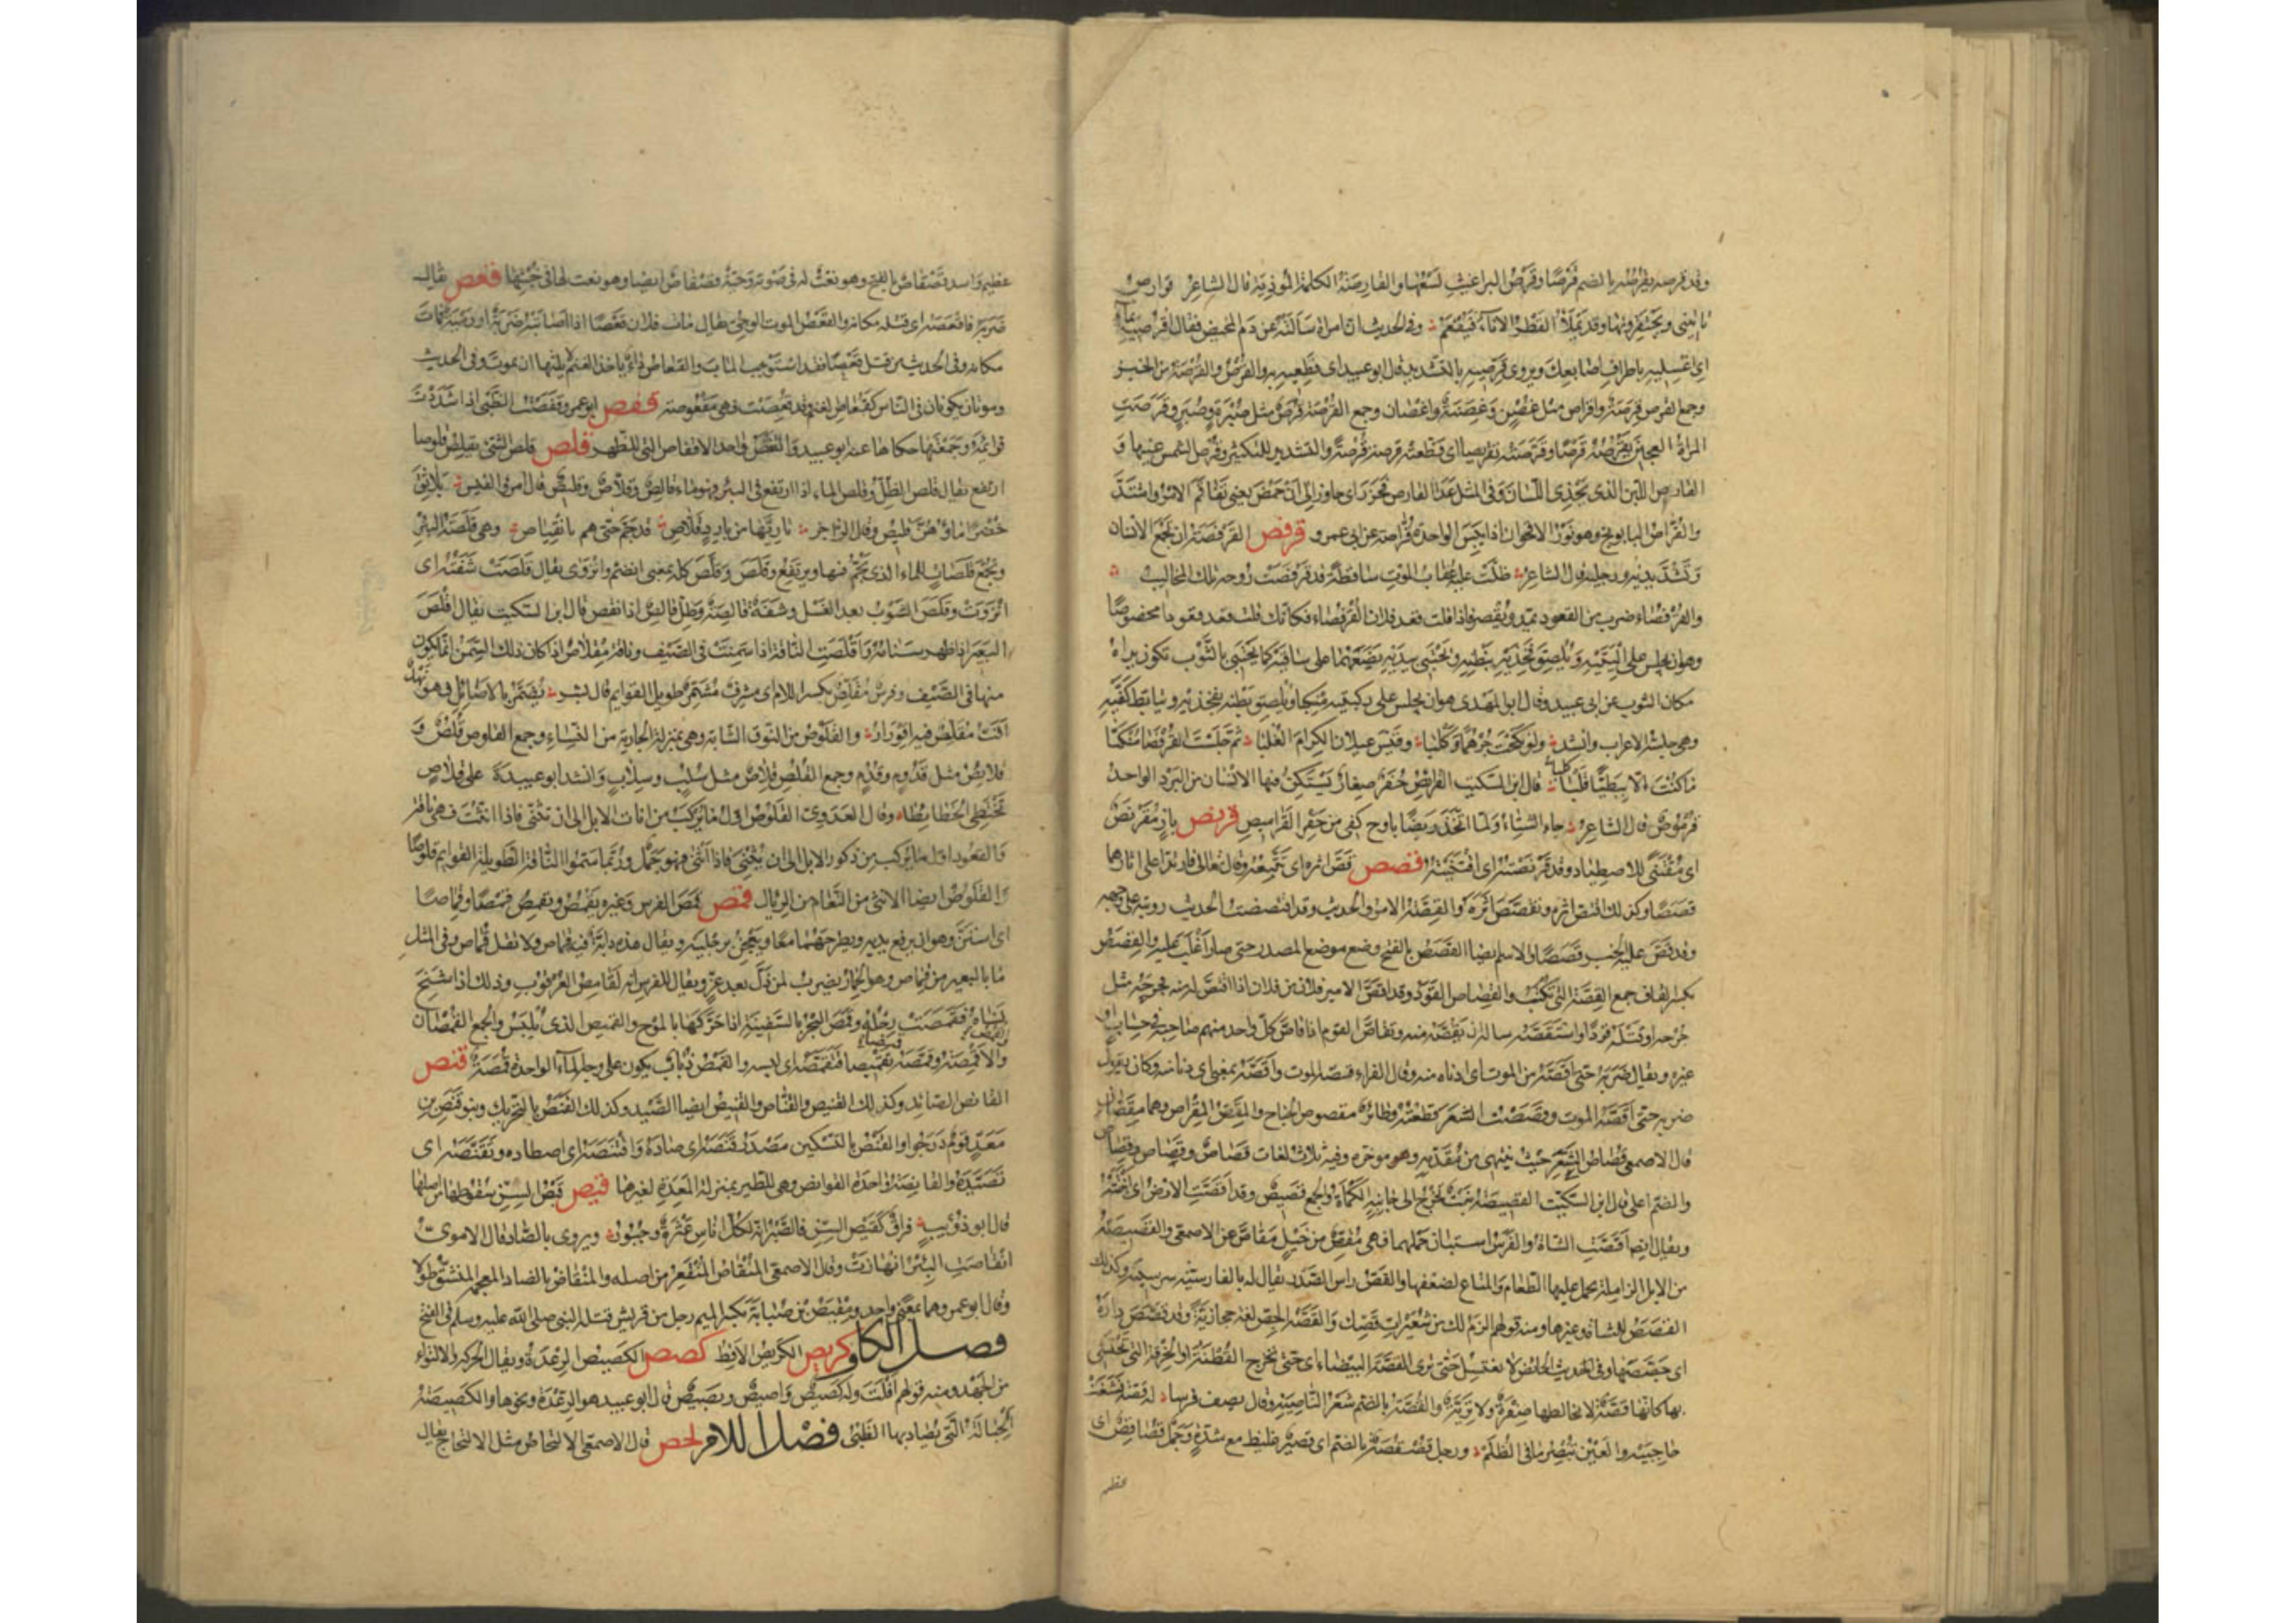 وقد قرصه يقرصه بالضم قرصا وقرص البراغيث لسعها والقارصة الكلمة المؤذية قال الشاعر قوارص
تأتيني ويحتقرونها وقد يملأ القطر الاناء فيفعم وفى الحديث ان امراة سألته عن دم المحيض فقال اقرصيه بماء
اى اغسليه باطراف اصابعك ويروى قرصيه بالتشديد قال ابو عبيد اى قطعيه به والقرص والقرصة من الخبز
وجمع القرص قرصة واقراص مثل غصن وغصنة واغصان وجمع القرصة قرص مثل صبرة وصبر وقرصت
المراة العجين تقرصه قرصا وقرصته تقريصا اى قطعته قرصة قرصة والتشديد للتكثير وقرص الشمس عينها و
القارص اللبن الذى يحذى اللسان وفى المثل عدا القارص فحزر اى جاوز الى ان حمض يعنى تفاقم الامر واشتد
والقراص البابونج وهو نور الاقحوان اذا يبس الواحدة قراصة عن ابى عمرو قرفص القرفصة ان تجمع الانسان
وتشد يديه ورجليه قال الشاعر ظلت عليه عقاب الموت ساقطة قد قرفصت روحه تلك المخاليب
والقرفصاء ضرب من القعود يمد ويقصر فاذا قلت قعد فلان القرفصاء فكانك قلت قعد قعودا مخصوصا
وهو ان يجلس على اليتيه ويلصق فخذيه ببطنه ويحتبى بيديه يضعهما على ساقيه كما يحتبى بالثوب تكون يداه
مكان الثوب عن ابى عبيد وقال ابو المهدى هو ان يجلس على ركبتيه منكبا ويلصق بطنه بفخذيه ويتأبط كفيه
وهى جلسة الاعراب وانشد ولو نكحت جرهما وكلبا وقيس عيلان الكرام الغلبا ثم جلست القرفصا منكبا
ما كنت الا نبطيا قلبا قال ابن السكيت القراميص حفر صغار يستكن فيها الانسان من البرد الواحد
قرموص قال الشاعر جاء الشتاء ولما اتخذ ربضا يا ويح كفى من حفر القراميص قرنص باز مقرنص
اى مقتنى للاصطياد وقد قرنصته اى اقتنيته قصص قص اثره اى تتبعه وقال تعالى فارتدا على اثارهما
قصصا وكذلك اقتص اثره وتقصص اثره والقصة الامر والحديث وقد اقتصصت الحديث رويته على وجهه
وقد قص عليه الخبر قصصا والاسم ايضا القصص بالفتح وضع موضع المصدر حتى صار اغلب عليه والقصص
بكسر القاف جمع القصة التى تكتب والقصاص القود وقد اقص الامير فلانا من فلان اذا اقتص له منه فجرحه مثل
جرحه او قتله قودا واستقصه سأله ان يقصه منه وتقاص القوم اذا قاص كل واحد منهم صاحبه فى حساب او
غيره ويقال ضربه حتى اقصه من الموت اى ادناه منه وقال الفراء قصه الموت واقصه بمعنى اى دنا منه وكان يقول
ضربه حتى اقصه الموت وقصصت الشعر قطعته وطائر مقصوص الجناح والمقص المقراص وهما مقصان
قال الاصمعى قصاص الشعر حيث ينتهى من مقدمه وهو موخره وفيه ثلاث لغات قصاص وقصاص وقصاص
والضم اعلى قال ابن السكيت القصيصة نبت يخرج الى جانبه الكماة والجمع قصيص وقد اقصت الارض اى انبتته
ويقال ايضا اقصت الشاة والفرس استبان حملهما فهى مقص من خيل مقاص عن الاصمعى والقصيصة
من الابل الزاملة يحمل عليها الطعام والمتاع لضعفها والقص راس الصدر يقال له بالفارسية سر سينه وكذلك
القصص للشاة وغيرها ومنه قولهم الزم لك من شعيرات قصك والقصة الجص لغة حجازية وقد قصص داره
اى جصصها وفى الحديث الحائض لا تغتسل حتى ترى القصة البيضاء اى حتى تخرج القطنة او الخرقة التى تحتشى
بها كانها قصة لا يخالطها صفرة ولا ترية والقصة بالضم شعر الناصية وقال يصف فرسا له قصة فشغت
حاجبيه والعين تبصر ما فى الظلم ورجل قصقصة بالضم اى قصير غليظ مع شدة وجمل قصاقص اى
عظيم
عظيم واسد قصقاص بالفتح وهو نعت له فى صوته وحية قصقاص ايضا وهو نعت لها فى خبثها قعص يقال
ضربه فاقعصه اى قتله مكانه والقعص الموت الوحى يقال مات فلان قعصا اذا اصابته ضربة او رمية فمات
مكانه وفى الحديث من قتل قعصا فقد استوجب المآب والقعاص داء ياخذ الغنم لا يلبثها ان تموت وفى الحديث
وموتان يكونان فى الناس كقعاص الغنم وقد قعصت فهى مقعوصة قفص ابو عمرو قفصت الظبى اذا شددت
قوائمه وجمعتها حكاها عنه ابو عبيد والقفص واحد الاقفاص التى للطير قلص قلص الشئ يقلص قلوصا
ارتفع يقال قلص الظل وقلص الماء اذا ارتفع فى البئر فهو ماء قالص وقلاص وقليص قال امرو القيس بلاثق
خضرا ماؤهن قليص وقال الراجز يا ريها من بارد قلاص قد جم حتى هم بانقياص وهى قلصة البئر
ويجمع قلصات للماء الذى يجم فيها ويرتفع وقلص وقلص كله بمعنى انضم وانزوى يقال قلصت شفته اى
انزوت وقلص الثوب بعد الغسل وشفة قالصة وظل قالص اذا نقص قال ابن السكيت يقال اقلص
البعير اذا ظهر سنامه واقلصت الناقة اذا سمنت فى الصيف وناقة مقلاص اذا كان ذلك السمن انما يكون
منها فى الصيف وفرس مقلص بكسر اللام اى مشرف مشمر طويل القوايم قال بشر يضمر بالاصائل فهو نهد
اقب مقلص فيه اقورار والقلوص من النوق الشابة وهى بمنزلة الجارية من النساء وجمع القلوص قلص و
قلائص مثل قدوم وقدم وجمع القلص قلاص مثل سلب وسلاب وانشد ابو عبيدة على قلاص
تختطى الخطائطا وقال العدوى القلوص اول ما يركب من اناث الابل الى ان تثنى فاذا اثنت فهى ناقة
والقعود اول ما يركب من ذكور الابل الى ان يثنى فاذا اثنى فهو جمل وربما سموا الناقة الطويلة القوايم قلوصا
والقلوص ايضا الانثى من النعام من الرئال قمص قمص الفرس وغيره يقمص ويقمص قمصا وقماصا
اى استن وهو ان يرفع يديه ويطرحهما معا ويعجن برجليه ويقال هذه دابة فيه قماص ولا تقل قماص وفى المثل
ما بالعير من قماص وهو الحمار يضرب لمن ذل بعد عز ويقال للفرس انه لقامص العرقوب وذلك اذا شنج
نساه فقمصت رجله وقمص البحر بالسفينة اذا حركها بالموج والقميص الذى يلبس والجمع القمصان
والاقمصة وقمصه تقميصا فتقمصه اى لبسه والقمص ذباب يكون على وجه الماء الواحدة قمصة قنص
القانص الصائد وكذلك القنيص والقناص والقنيص ايضا الصيد وكذلك القنص بالتحريك وبنو قنص بن
معد قوم درجوا والقنص بالتسكين مصدر قنصه اى صاده واقتنصه اى اصطاده وتقنصه اى
تصيده والقانصة واحدة القوانص وهى للطير بمنزلة المعدة لغيرها قيص قيص السن سقوطها من اصلها
قال ابو ذؤيب فراق كقيص السن فالصبر انه لكل اناس عثرة وجبور ويروى بالضاد قال الاموى
انقاصت البئر انهارت وقال الاصمعى المنقاص المنقعر من اصله والمنقاض بالضاد المعجم المنشق طولا
وقال ابو عمرو هما بمعنى واحد ومقيص بن صبابة بكسر الميم رجل من قريش قتله النبى صلى الله عليه وسلم فى الفتح
فصل الكاف كريص الكريص الاقط كصص الكصيص الرعدة ويقال الحركة والالتواء
من الجهد ومنه قولهم افلت وله كصيص واصيص وبصيص قال ابو عبيد هو الرعدة ونحوها والكصيصة
الحبالة التى يصاد بها الظبى فصل اللام لحص قال الاصمعى الالتحاص مثل الالتحاج يقال